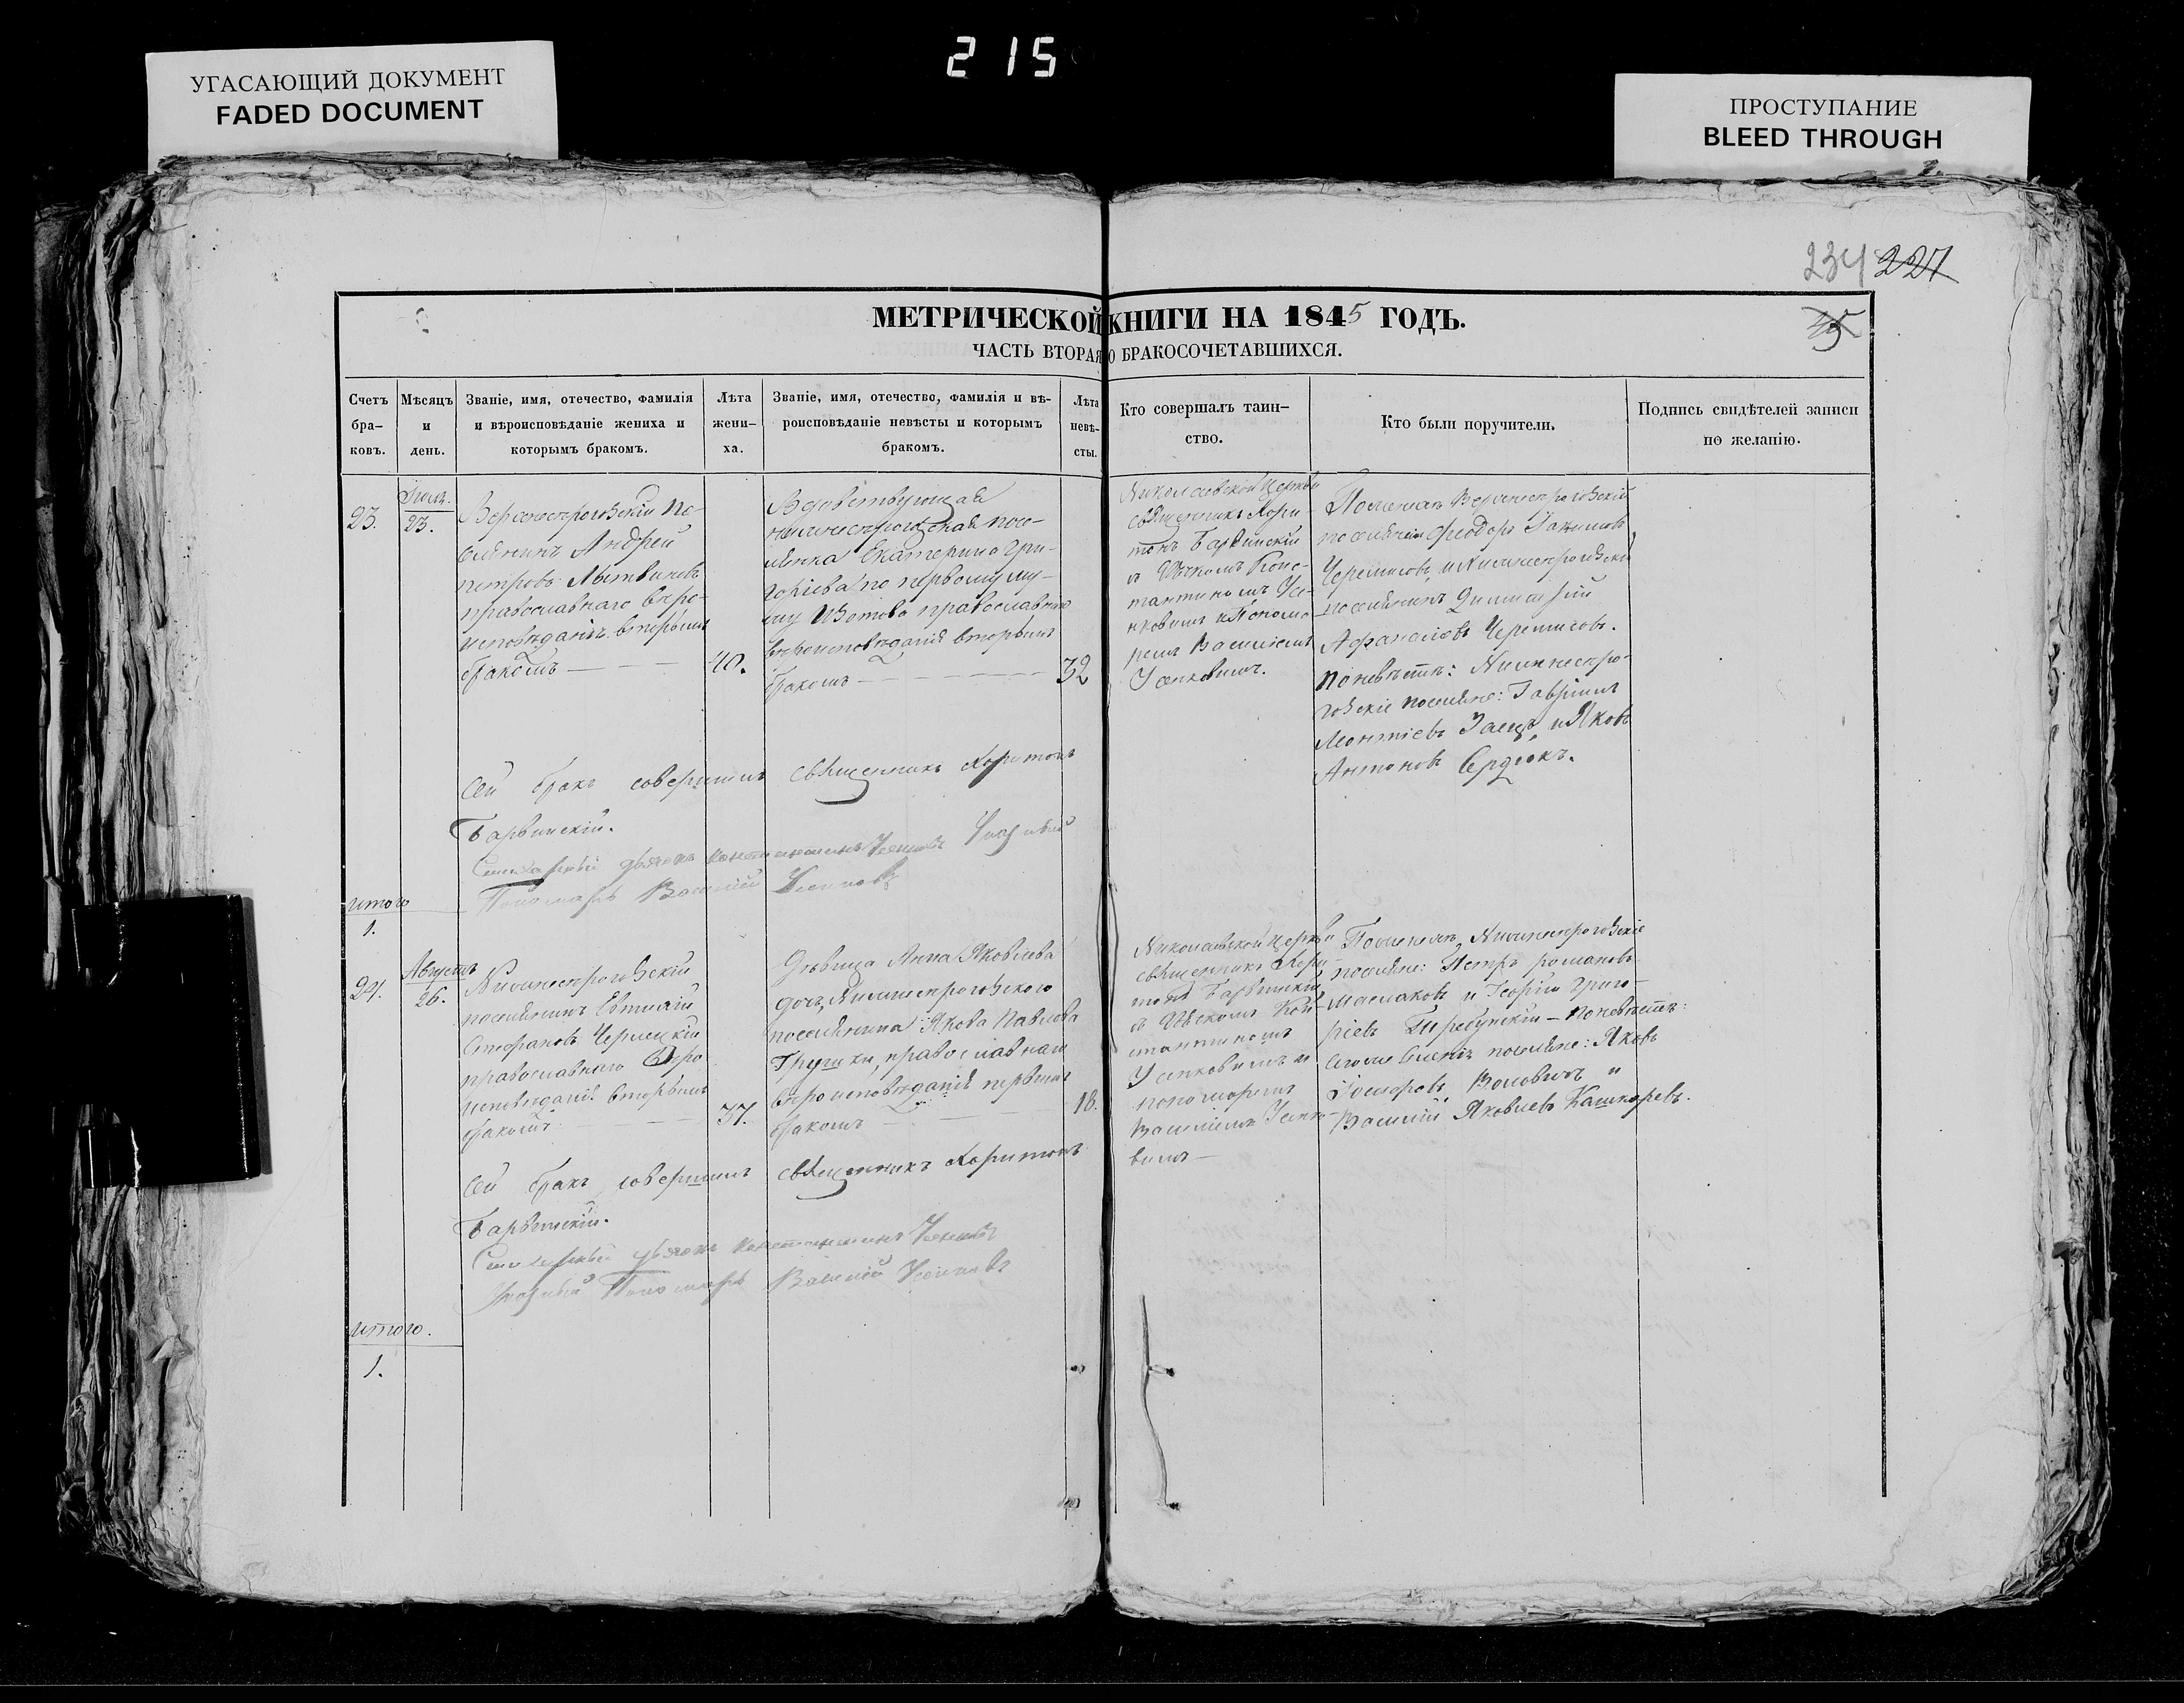 215
УГАСАЮЩИЙ ДОКУМЕНТ
FADED DOCUMENT
ПРОСТУПАНИЕ
BLEED THROUGH
234 227
МЕТРИЧЕСКОЙ КНИГИ НА 1845 ГОДЪ.
ЧАСТЬ ВТОРАЯ О БРАКОСОЧЕТАВШИХСЯ.
Счетъ
бра-
ковъ.
Мѣсяцъ
и
день.
Званіе, имя, отечество, фамилія
и вѣроисповѣданіе жениха и
которымъ бракомъ.
Лѣта
жени-
ха.
Званіе, имя, отечество, фамилія и вѣ-
роисповѣданіе невѣсты и которымъ
бракомъ.
Лѣта
невѣ-
сты.
Кто совершалъ таин-
ство.
Кто были поручители.
Подпись свидѣтелей записи
по желанію.
23.
23.
Верхнесерогозскій по-
селянинъ Андрей
Петровъ Литвиновъ
православнаго веро-
исповѣданія вторымъ
бракомъ
40.
Вдовствующая
нижнесерогозская посе-
лянка Екатерина Гри-
горіева по первому му-
жу Изотова православнаго
вероисповѣданія вторымъ
бракомъ
32
Николаевской церкви
священникъ Хари-
тонъ Барвинскій
съ дьячкомъ Конс-
тантиномъ Усе-
нковымъ и Понома-
ремъ Василіемъ
Усенковымъ.
По женихѣ Верхнесерогозскій
поселянинъ Феодоръ Іакимовъ
Черемисовъ, и Нижнесерогозскій
поселянинъ Димитрій
Афанасіевъ Черемисовъ.
По невѣстѣ: Нижнесеро-
гозскіе поселяне: Гавріилъ
Леонтіевъ Заецъ, и Яковъ
Антоновъ Сердюкъ.
Сей бракъ совершилъ священникъ Харитонъ
Барвинскій.
Стихарный дьячокъ Константинъ Усенковъ Указный
Пономарь Василій Усенковъ
Итого
1.
24.
Августъ
26.
Нижнесерогозскій
поселянинъ Евтихій
Стефановъ Чернецкій
православнаго веро
исповѣданія вторымъ
бракомъ
37.
Дѣвица Анна Яковлева
дочь Нижнесерогозского
поселянина Якова Павлова
православнаго
вероисповѣданія первымъ
бракомъ
18.
Николаевской церкви
священникъ Хари-
тонъ Барвинскій
съ дьячкомъ Кон-
стантиномъ
Усенковымъ и
пономаремъ
Василіемъ Усенко-
вымъ
По женихѣ, Нижнесерогозскіе
поселяне: Петръ Романовъ
Маслаковъ и Георгій Григо-
ріевъ - По невѣстѣ:
поселяне: Яковъ
и
Василій Яковлевъ Кашкаревъ.
Сей бракъ совершилъ священникъ Харитонъ
Барвинскій.
Стихарный дьячокъ Константинъ Усенковъ
Указный Пономарь Василій Усенковъ
Итого.
1.